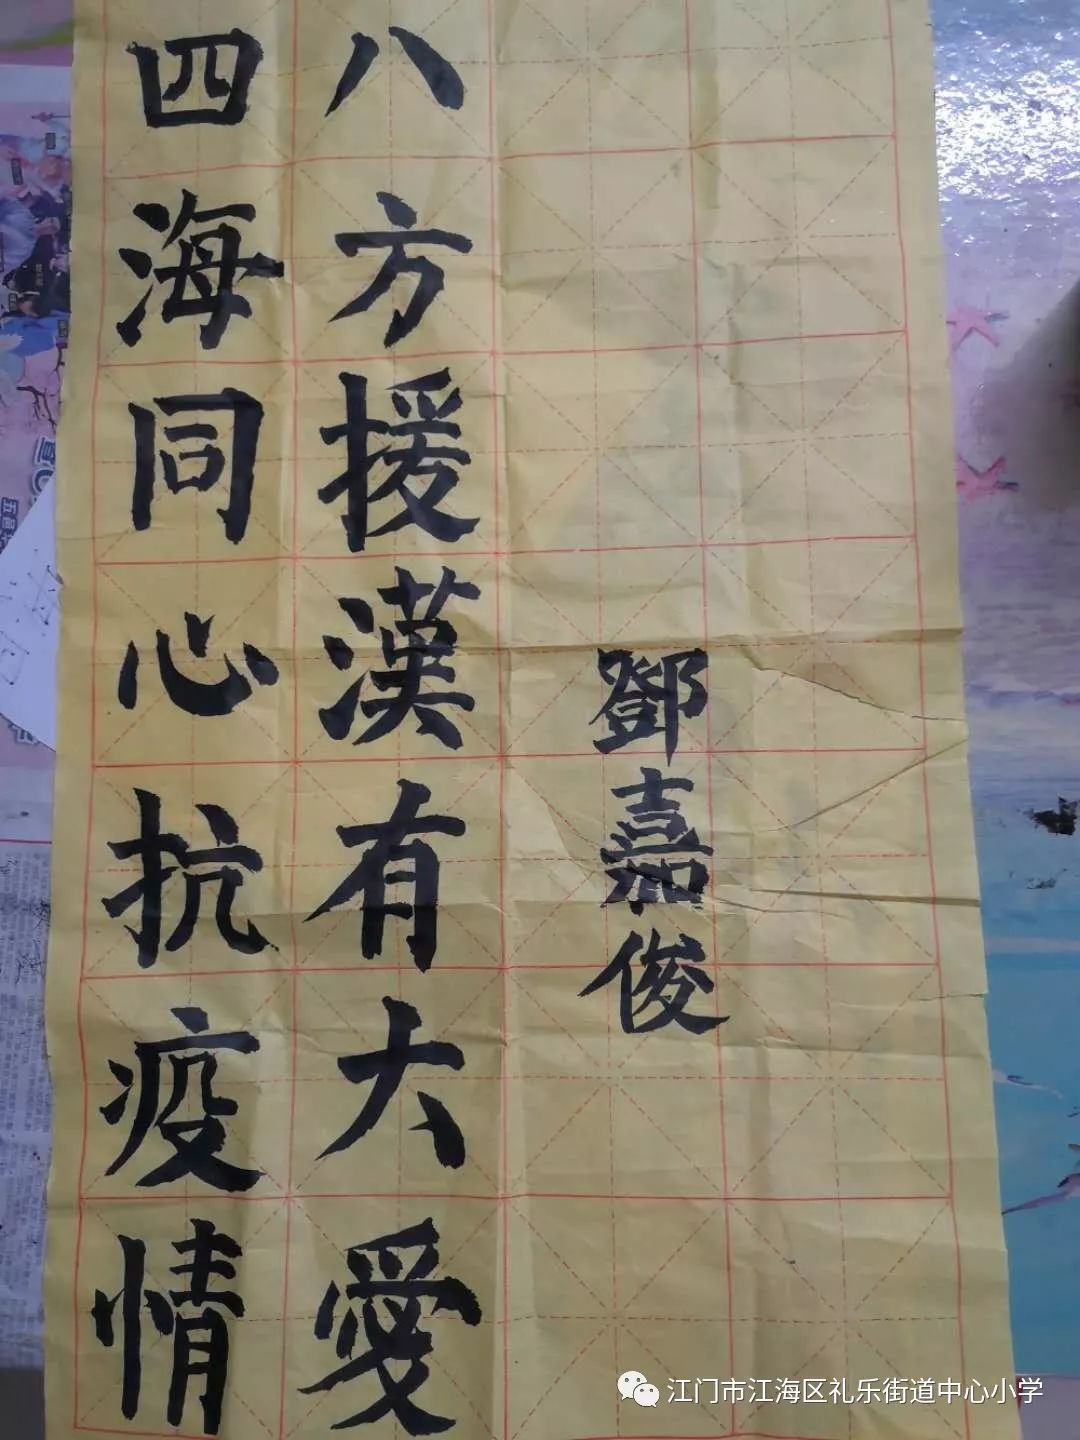 八方援漢有大愛
四海同心抗疫情
鄧嘉俊
江门市江海区礼乐街道中心小学